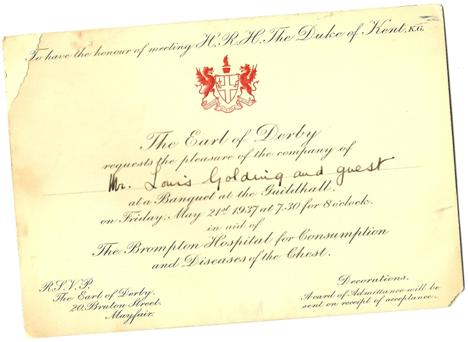 To have the honour of meeting H.R.H. The Duke of Kent, K.G.
The Earl of Derby
requests the pleasure of the company of
Mr. Louis Golding and guest
at a Banquet at the Guildhall,
on Friday, May 21st 1937 at 7.30 for 8 o'clock.
in aid of
The Brompton Hospital for Consumption
and Diseases of the Chest.
R.S.V.P.
The Earl of Derby.
20. Bruton Street.
Mayfair.
Decorations.
A card of Admittance will be
sent on receipt of acceptance.